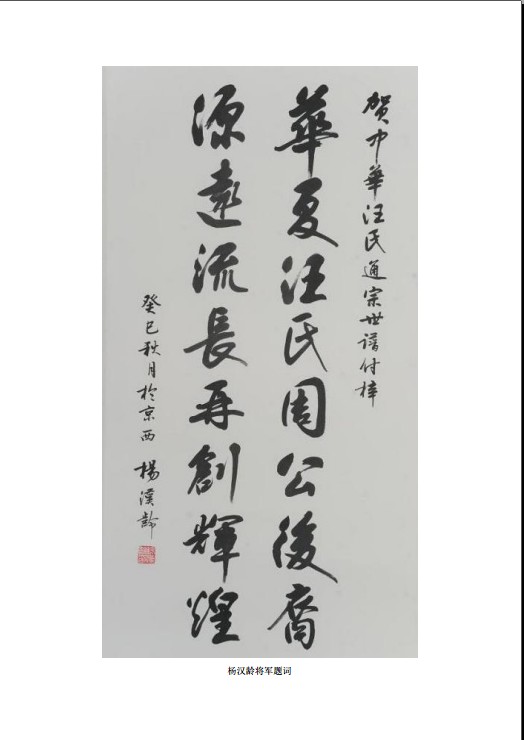 賀中華汪氏通宗世譜付梓
華夏汪氏周公後裔
源遠流長再創輝煌
癸巳秋月於京西 楊漢齡
杨汉龄将军题词